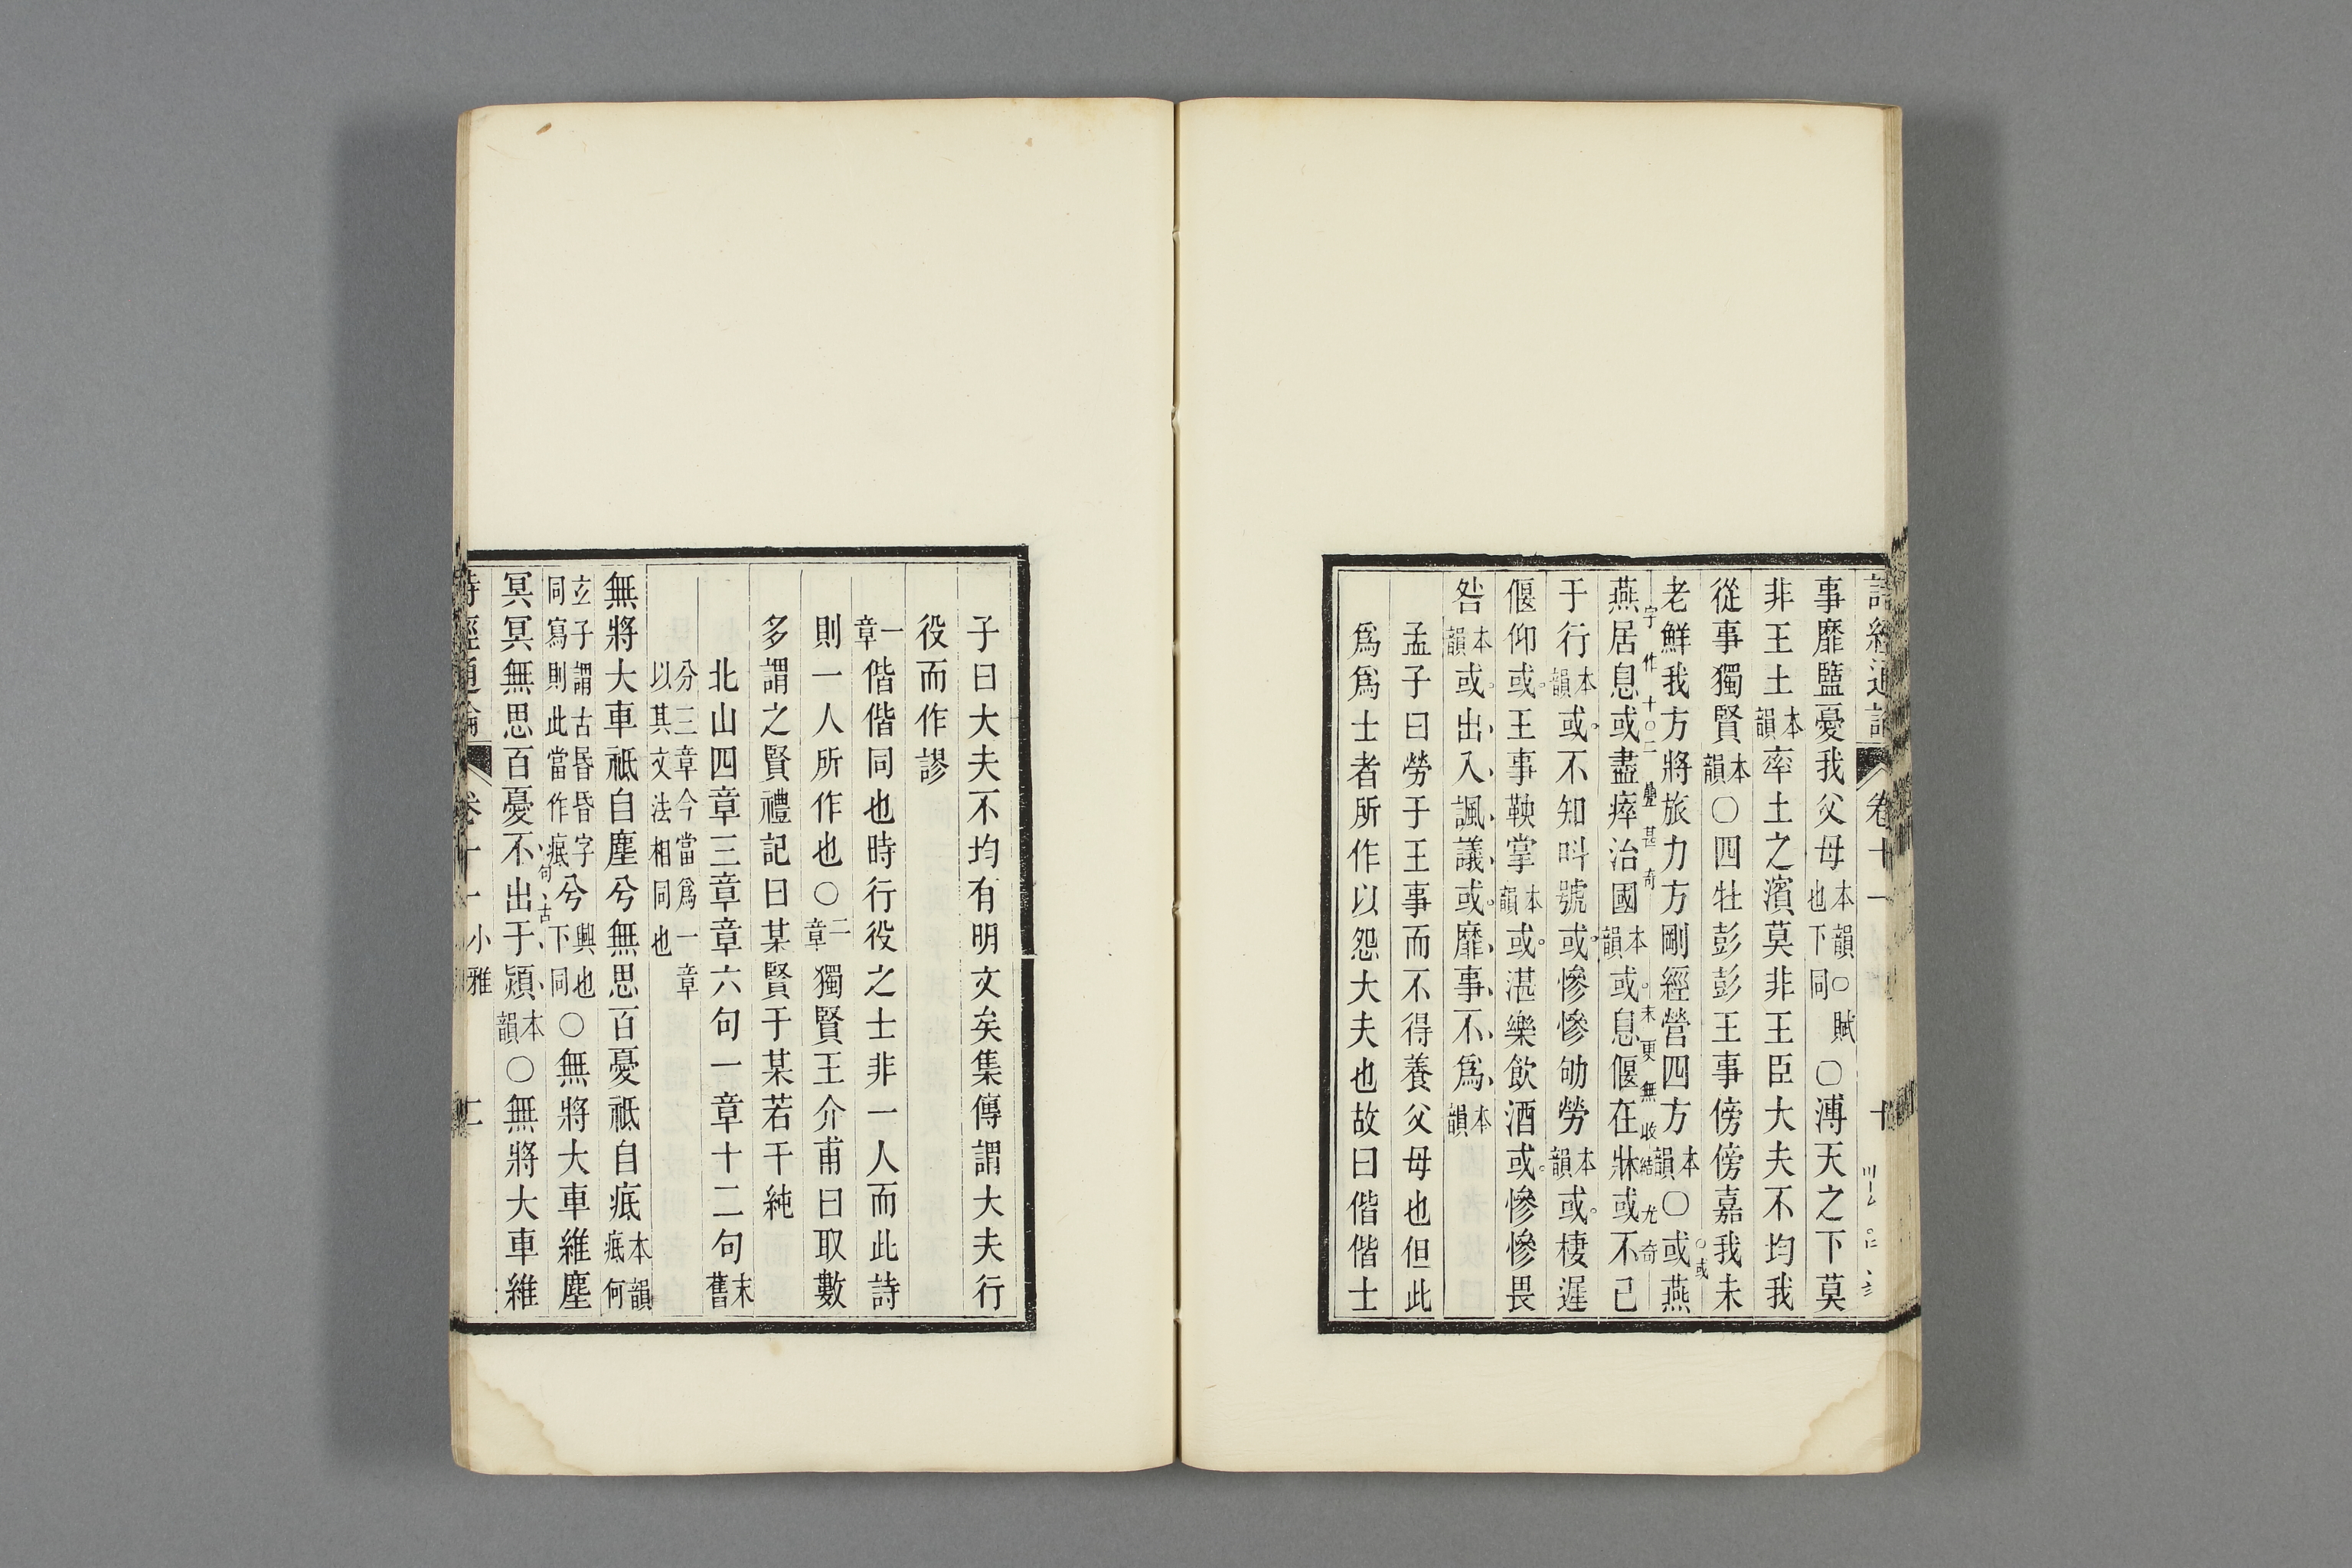 詩經通論 卷十一 十
事靡盬憂我父母本韻○賦也下同○溥天之下莫
非王土本韻率土之濱莫非王臣大夫不均我
從事獨賢本韻○四牡彭彭王事傍傍嘉我未
○或
老鮮我方將旅力方剛經營四方本韻○或燕
字作十○二疊甚奇末更無收結尤奇
燕居息或盡瘁治國本韻或息偃在牀或不已
于行本韻或不知叫號或慘慘劬勞本韻或棲遲
偃仰或王事鞅掌本韻或湛樂飲酒或慘慘畏
咎本韻或出入諷議或靡事不爲本韻
孟子曰勞于王事而不得養父母也但此
爲爲士者所作以怨大夫也故曰偕偕士
子曰大夫不均有明文矣集傳謂大夫行
役而作謬
一章偕偕同也時行役之士非一人而此詩
則一人所作也○二章獨賢王介甫曰取數
多謂之賢禮記曰某賢于某若干純
北山四章三章章六句一章十二句末舊
分三章今當爲一章以其文法相同也
無將大車祗自塵兮無思百憂祗自疷本韻疷何
玄子謂古昬昏字同寫則此當作痕兮興也下同○無將大車維塵
句古
冥冥無思百憂不出于熲本韻○無將大車維
詩經通論 卷十一 小雅